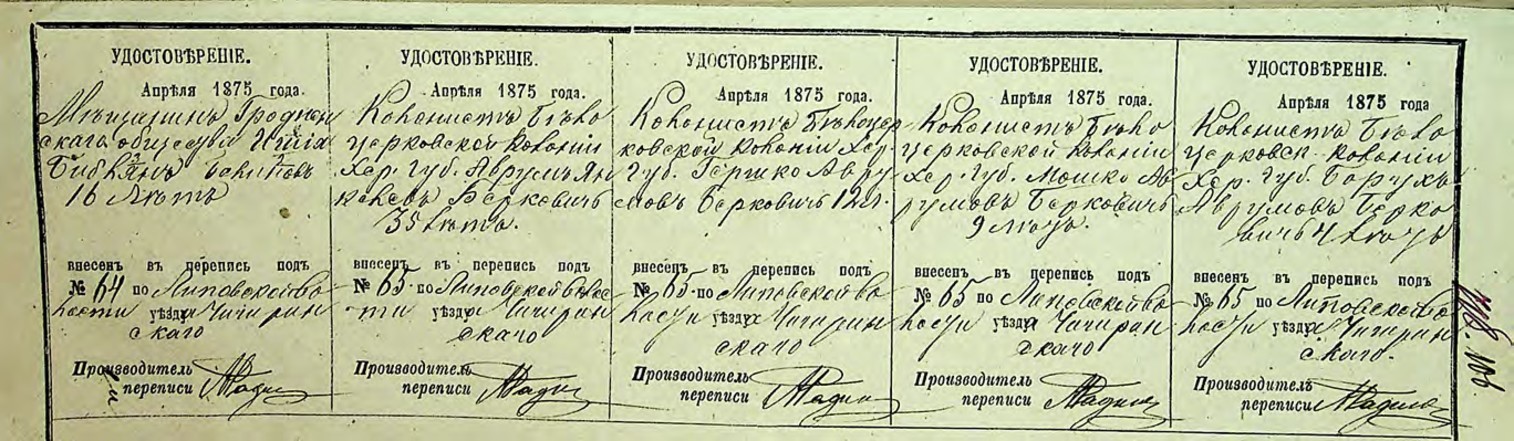 УДОСТОВѢРЕНІЕ.
Апрѣля 1875 года.
Мѣщанинъ Гроднен
скаго общества
16 лѣтъ
внесенъ въ перепись подъ
№ 64 по Липовской во
лости уѣзда Чигирин
скаго
Производитель
переписи
УДОСТОВѢРЕНІЕ.
Апрѣля 1875 года.
Колонистъ Бѣло
церковской колоніи
Хер. Губ. Аврумъ Ян
келевъ Берковичъ
35 лѣтъ.
внесенъ въ перепись подъ
№ 65 по Липовской волос
ти уѣзда Чигирин
скаго
Производитель
переписи
УДОСТОВѢРЕНІЕ.
Апрѣля 1875 года.
Колонистъ Бѣлоцер
ковской колоніи Хер.
Губ. Гершко Авру
мовъ Берковичъ 12 л.
внесенъ въ перепись подъ
№ 65 по Липовской во
лости уѣзда Чигирин
скаго
Производитель
переписи
УДОСТОВѢРЕНІЕ.
Апрѣля 1875 года.
Колонистъ Бѣло
церковской колоніи
Хер. Губ. Мошко Ав
румовъ Берковичъ
9 лѣтъ.
внесенъ въ перепись подъ
№ 65 по Липовской во
лости уѣзда Чигирин
скаго
Производитель
переписи
УДОСТОВѢРЕНІЕ.
Апрѣля 1875 года
Колонистъ Бѣло
церковск. колоніи
Хер. Губ. Борухъ
Аврумовъ Берко
вичъ 4 лѣтъ
внесенъ въ перепись подъ
№ 65 по Липовской во
лости уѣзда Чигирин
скаго.
Производитель
переписи